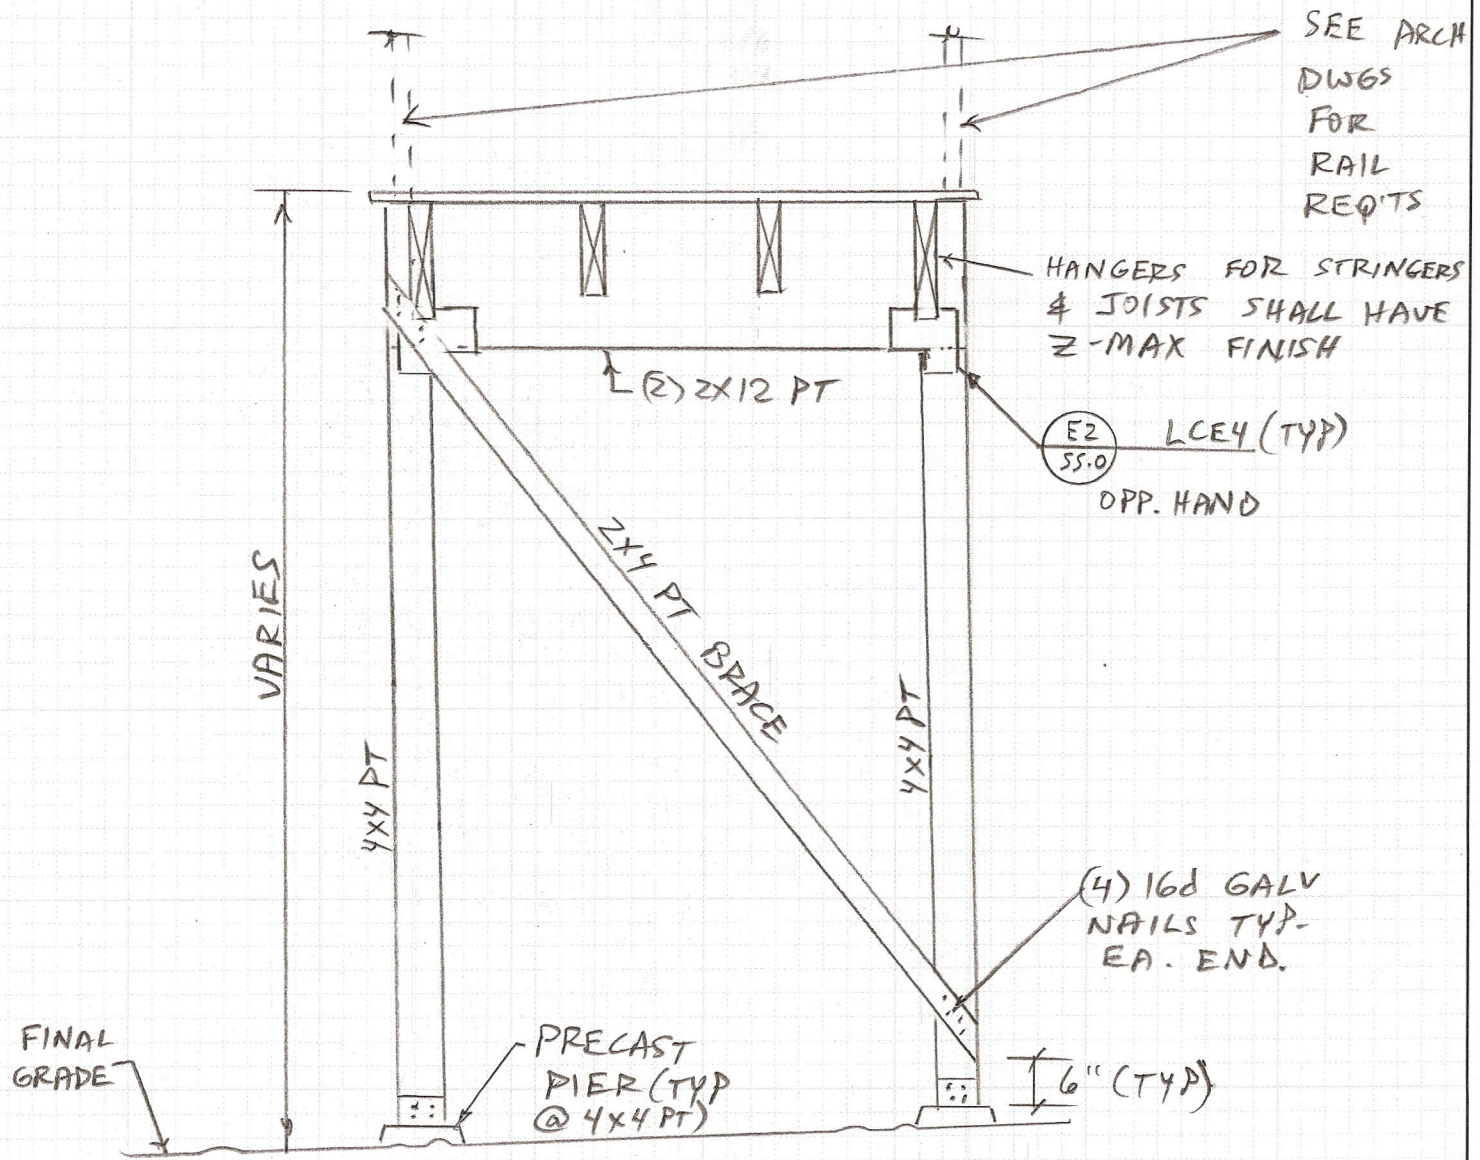 SEE ARCH
DWGS
FOR
RAIL
REQ'TS
HANGERS FOR STRINGERS
& JOISTS SHALL HAVE
Z-MAX FINISH
(2) 2X12 PT
E2
S5.0
LCE4 (TYP)
OPP. HAND
VARIES
2X4 PT BRACE
4X4 PT
4X4 PT
(4) 16d GALV
NAILS TYP.
EA. END.
FINAL
GRADE
PRECAST
PIER (TYP
@ 4X4 PT)
6" (TYP)